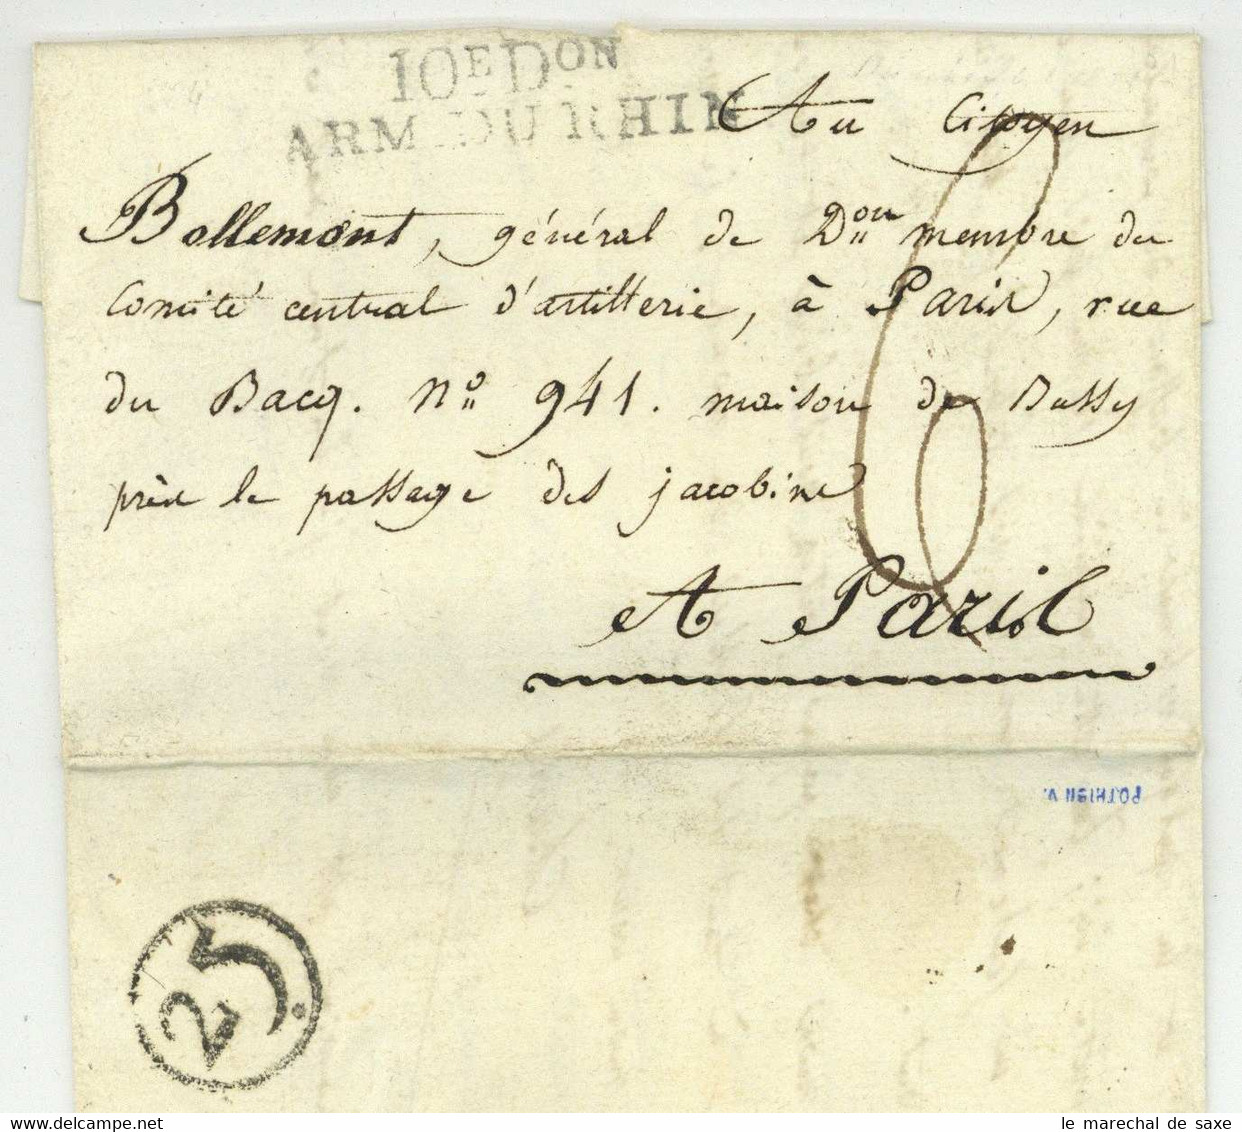 10E DON
ARM. DU RHIN
Au Citoyen
Bollemont, général de Don membre du
Comité central d'artillerie, à Paris, rue
du Bacq. No 941. maison de Bussy
près le passage des jacobins
A Paris
6
POTHION V.
25
www.delcampe.net
le marechal de saxe